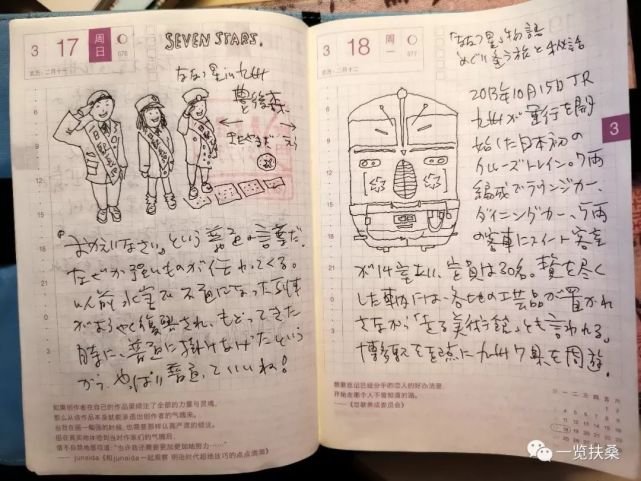 3 17 周日
076
农历:二月十一
SEVEN STARS.
ななつ星in九州
豊後森
『おかえりなさい』という普通の言葉だ、
なぜか強いものが伝わってくる。
以前水害で不通になった列車
がようやく復興され、もどってきた
時に、普通に掛けなけたという
から、やっぱり普通っていいね!
如果创作者在自己的作品里倾注了全部的力量与灵魂,
那么从该作品本身就能渗透出创作者的气魄来。
但在真实地体悟到当时作家们的气魄后,
—— junaida《和junaida一起观察 明治时代超绝技巧的点点滴滴》
3 18 周一
077
农历:二月十二
「ななつ星」物語
めぐり逢う旅と秘話
2013年10月15日JR
九州が運行を開
始した日本初の
クルーズトレイン。7両
編成でラウンジカー、
ダイニングカー、5両
の客車にスイート客室
が14室あい、定員は30名。贅を尽く
した車内には、各地の工芸品が置かれ
さながら「走る美術館」とも言われる。
博多駅を起点に九州7県を周遊。
3
想要忘记已经分手的恋人的好办法是,
开始走那个人不曾知道的路。
——《恋歌养成委员会》
一览扶桑